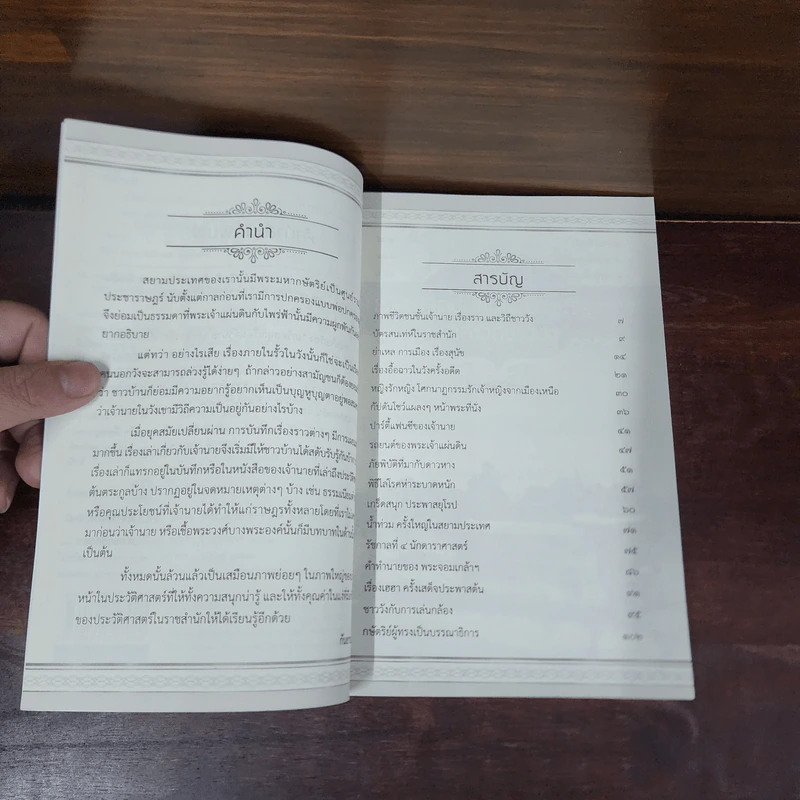 คำนำ
สยามประเทศของเรานั้นมีพระมหากษัตริย์เป็นศูนย์
ประชาราษฎร์ นับตั้งแต่กาลก่อนที่เรามีการปกครองแบบพ่อปกครอง
จึงย่อมเป็นธรรมดาที่พระเจ้าแผ่นดินกับไพร่ฟ้านั้นมีความผูกพันกัน
ยากอธิบาย
แต่ทว่า อย่างไรเสีย เรื่องภายในรั้วในวังนั้นก็ใช่จะเป็น
คนนอกวังจะสามารถล่วงรู้ได้ง่ายๆ ถ้ากล่าวอย่างสามัญชนก็ต้อง
ว่า ชาวบ้านก็ย่อมมีความอยากรู้อยากเห็นเป็นบุญหูบุญตาอยู่
ว่าเจ้านายในวังเขามีวิถีความเป็นอยู่กันอย่างไรบ้าง
เมื่อยุคสมัยเปลี่ยนผ่าน การบันทึกเรื่องราวต่างๆ มีการ
มากขึ้น เรื่องเล่าเกี่ยวกับเจ้านายจึงเริ่มมีให้ชาวบ้านได้สดับรับรู้กัน
เรื่องเล่าก็แทรกอยู่ในบันทึกหรือในหนังสือของเจ้านายที่เล่าถึงประวัติ
ต้นตระกูลบ้าง ปรากฏอยู่ในจดหมายเหตุต่างๆ บ้าง เช่น ธรรมเนียม
หรือคุณประโยชน์ที่เจ้านายได้ทำให้แก่ราษฎรทั้งหลายโดยที่เรา
มาก่อนว่าเจ้านาย หรือเชื้อพระวงศ์บางพระองค์นั้นก็มีบทบาทในด้าน
เป็นต้น
ทั้งหมดนั้นล้วนแล้วเป็นเสมือนภาพย่อยๆ ในภาพใหญ่ของ
หน้าในประวัติศาสตร์ที่ให้ทั้งความสนุกน่ารู้ และให้ทั้งคุณค่าใน
ของประวัติศาสตร์ในราชสำนักให้ได้เรียนรู้อีกด้วย
สารบัญ
ภาพชีวิตชนชั้นเจ้านาย เรื่องราว และวิถีชาววัง ๗
บัตรสนเท่ห์ในราชสำนัก ๙
ย่าเหล การเมือง เรื่องสุนัข ๑๔
เรื่องอื้อฉาวในวังครั้งอดีต ๒๑
หญิงรักหญิง โศกนาฏกรรมรักเจ้าหญิงจากเมืองเหนือ ๓๐
กัปตันโชว์แผลงๆ หน้าพระที่นั่ง ๓๖
ปาร์ตี้แฟนซีของเจ้านาย ๔๑
รถยนต์ของพระเจ้าแผ่นดิน ๔๗
ภัยพิบัติที่มากับดาวหาง ๕๑
พิธีไล่โรคห่าระบาดหนัก ๕๗
เกร็ดสนุก ประพาสยุโรป ๖๐
น้ำท่วม ครั้งใหญ่ในสยามประเทศ ๗๑
รัชกาลที่ ๔ นักดาราศาสตร์ ๗๕
คำทำนายของ พระจอมเกล้าฯ ๘๖
เรื่องเฮฮา ครั้งเสด็จประพาสต้น ๙๑
ชาววังกับการเล่นกล้อง ๙๕
กษัตริย์ผู้ทรงเป็นบรรณาธิการ ๑๐๒